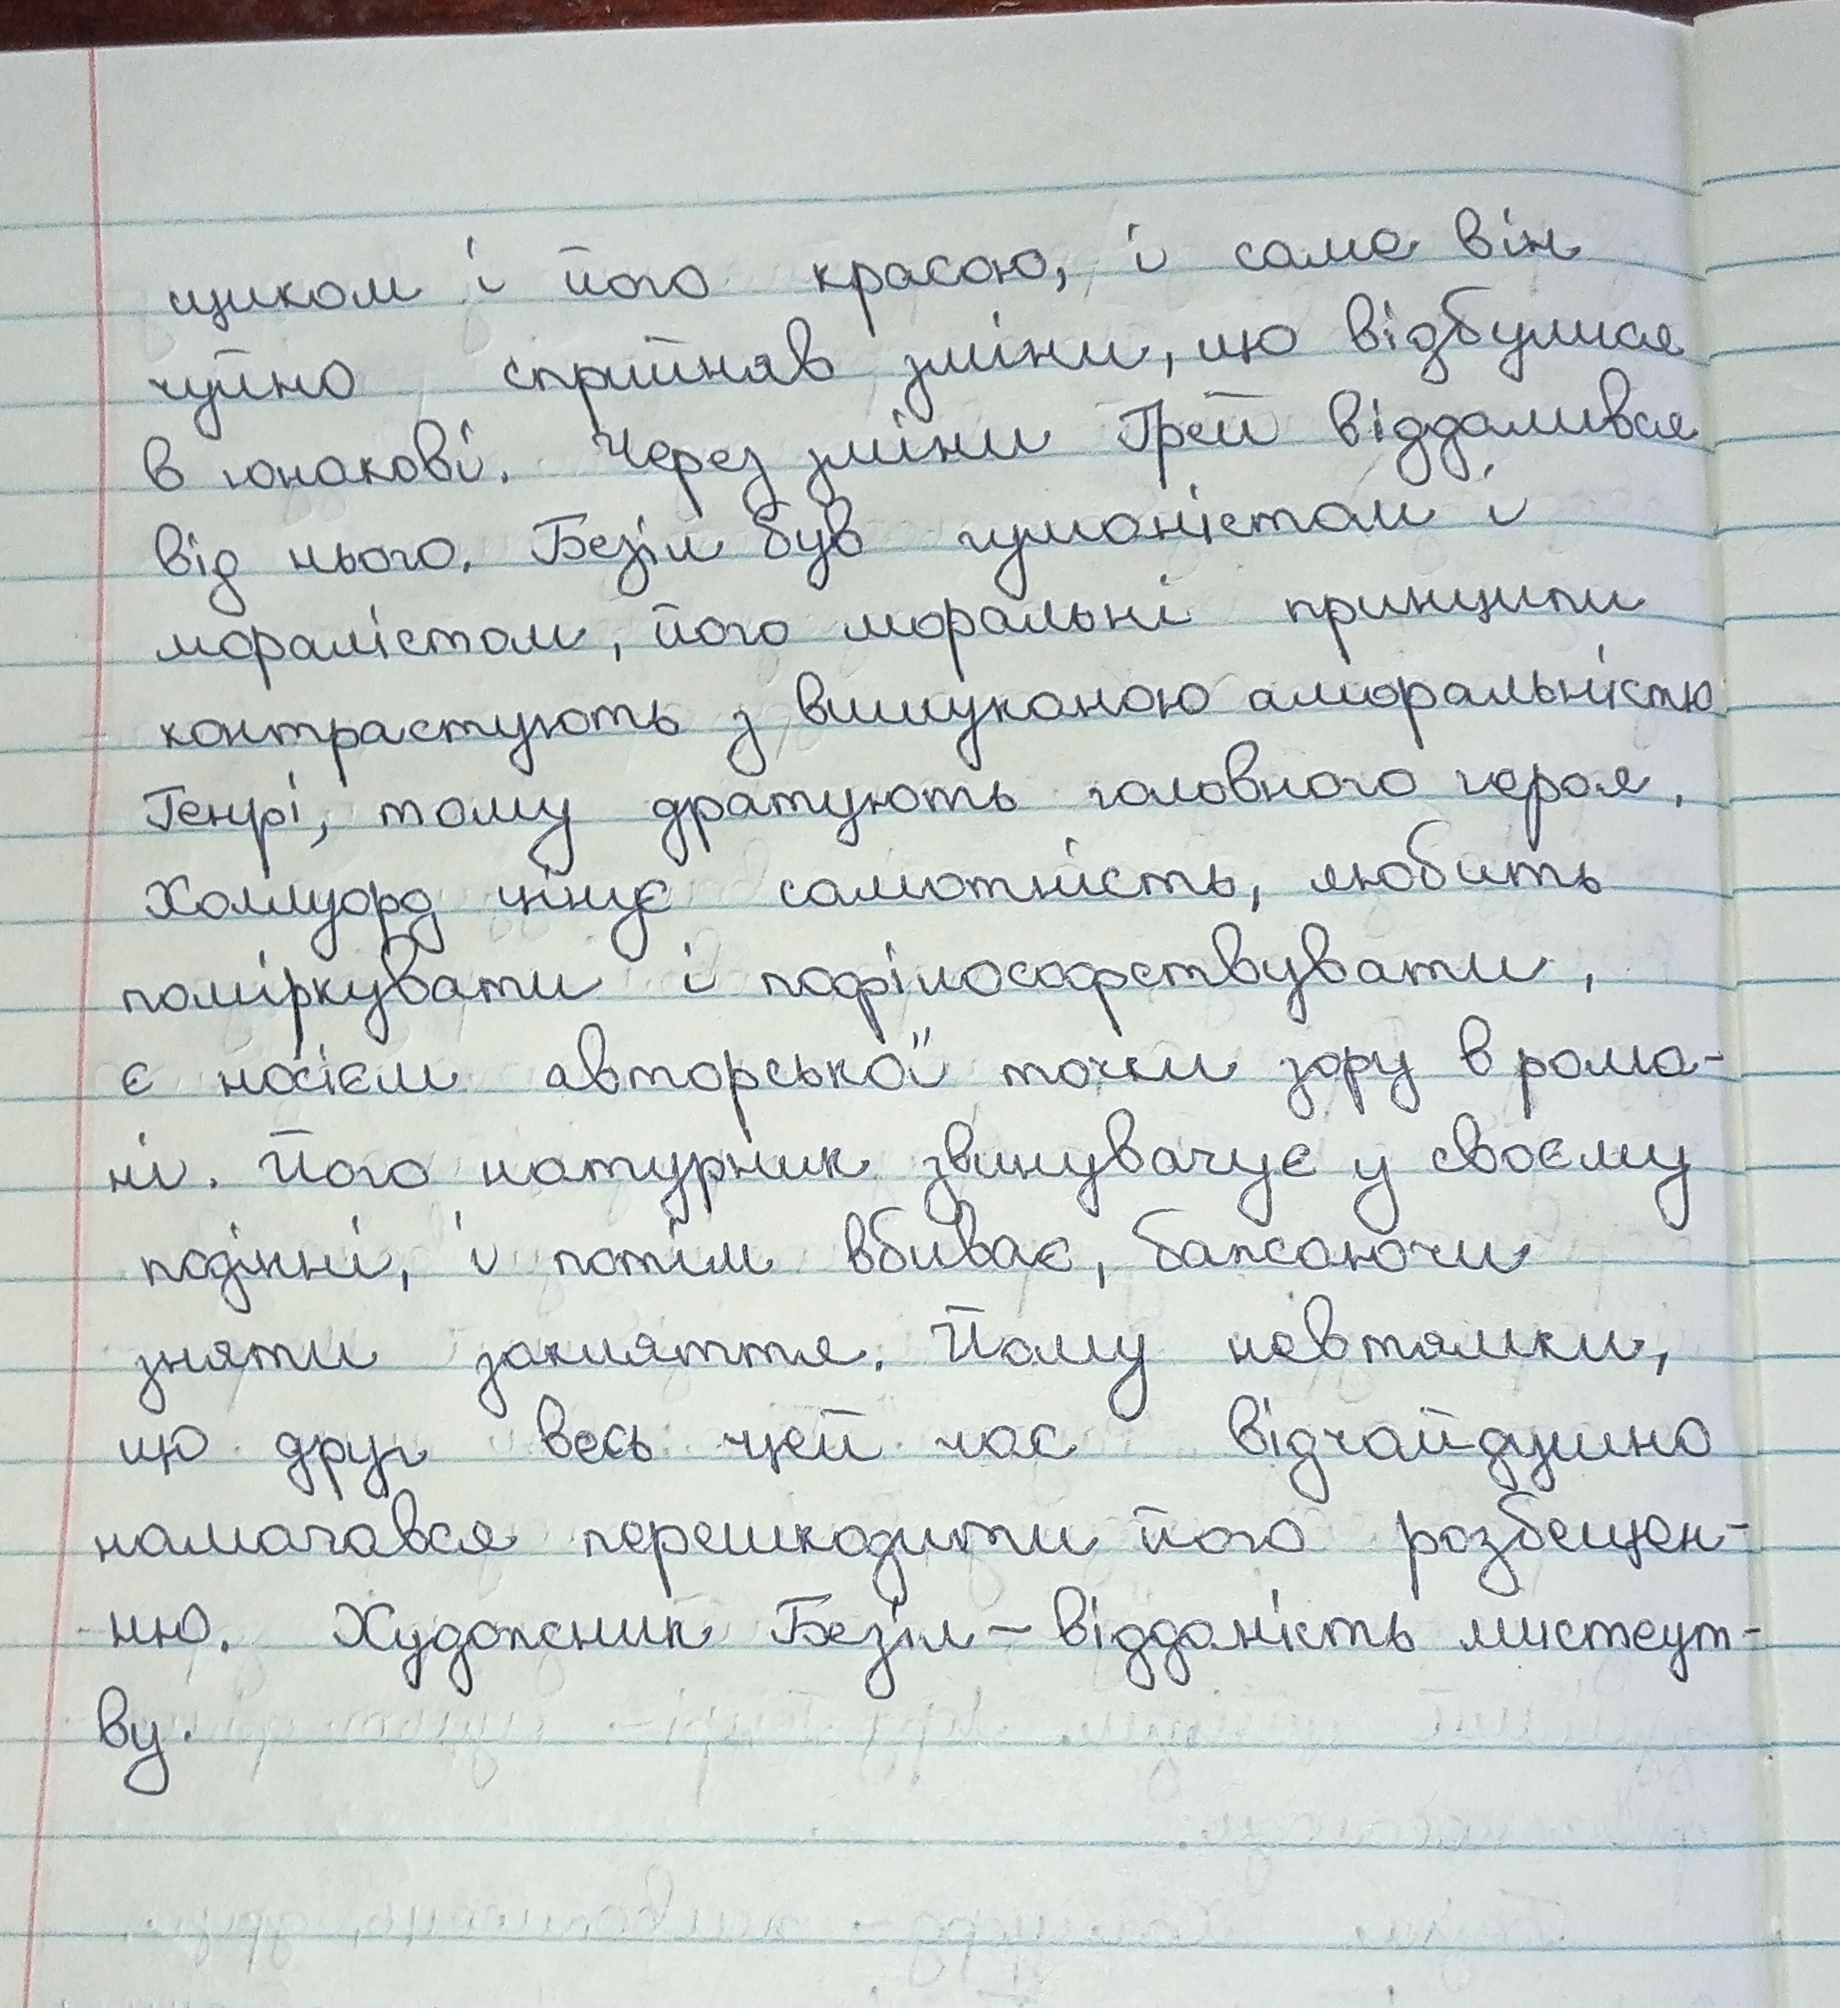 щиком і його красою, і саме він
чуйно сприйняв зміни, що відбулися
в юнакові. Через зміни Грей віддалився
від нього. Безіл був гуманістом і
моралістом, його моральні принципи
контрастують з вишуканою аморальністю
Генрі, тому дратують головного героя.
Холлуорд цінує самотність, любить
поміркувати і пофілософствувати,
є носієм авторської точки зору в рома-
ні. Його натурник звинувачує у своєму
падінні, і потім вбиває, бажаючи
зняти закляття. Йому невтямки,
що друг весь цей час відчайдушно
намагався перешкодити його розбещен-
ню. Художник Безіл – відданість мистеут-
ву.